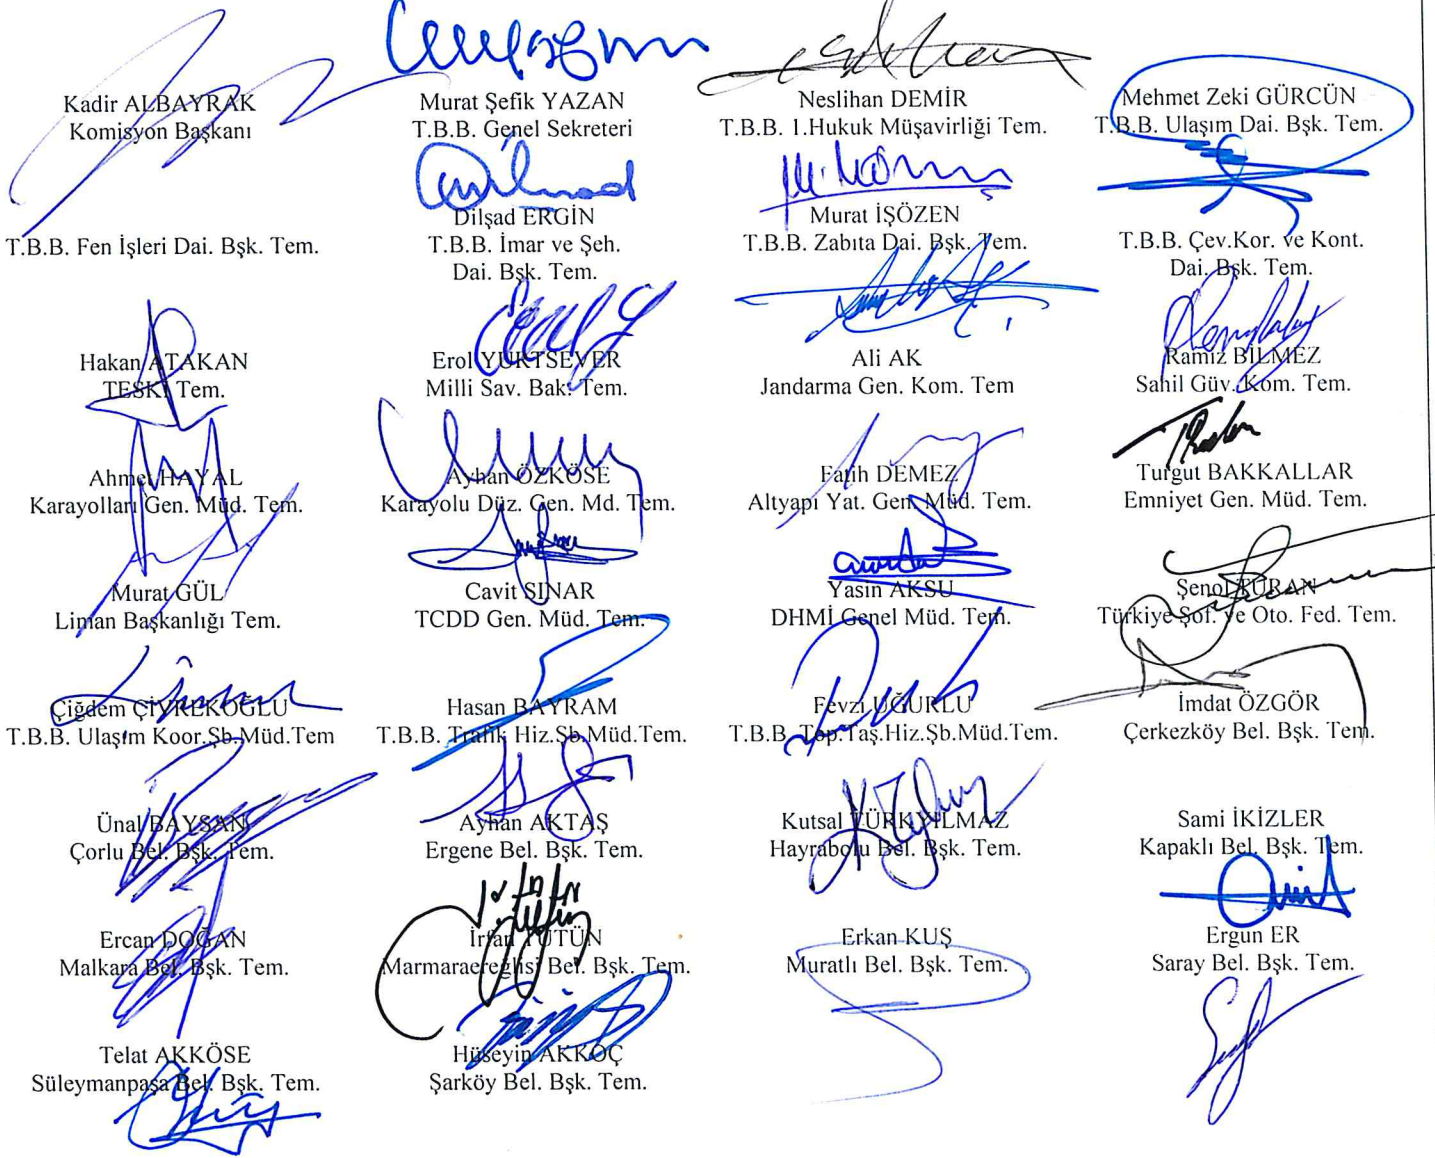 Kadir ALBAYRAK
Komisyon Başkanı
Murat Şefik YAZAN
T.B.B. Genel Sekreteri
Neslihan DEMİR
T.B.B. 1.Hukuk Müşavirliği Tem.
Mehmet Zeki GÜRCÜN
T.B.B. Ulaşım Dai. Bşk. Tem.
T.B.B. Fen İşleri Dai. Bşk. Tem.
Dilşad ERGİN
T.B.B. İmar ve Şeh.
Dai. Bşk. Tem.
Murat İŞÖZEN
T.B.B. Zabıta Dai. Bşk. Tem.
T.B.B. Çev.Kor. ve Kont.
Dai. Bşk. Tem.
Hakan ATAKAN
TESKİ Tem.
Erol YURTSEVER
Milli Sav. Bak. Tem.
Ali AK
Jandarma Gen. Kom. Tem
Ramiz BİLMEZ
Sahil Güv. Kom. Tem.
Ahmet HAYAL
Karayolları Gen. Müd. Tem.
Ayhan ÖZKÖSE
Karayolu Düz. Gen. Md. Tem.
Fatih DEMEZ
Altyapı Yat. Gen. Müd. Tem.
Turgut BAKKALLAR
Emniyet Gen. Müd. Tem.
Murat GÜL
Liman Başkanlığı Tem.
Cavit SINAR
TCDD Gen. Müd. Tem.
Yasin AKSU
DHMİ Genel Müd. Tem.
Şenol TURAN
Türkiye Şof. ve Oto. Fed. Tem.
Çiğdem ÇİVREKOĞLU
T.B.B. Ulaşım Koor.Şb.Müd.Tem
Hasan BAYRAM
T.B.B. Trafik Hiz.Şb.Müd.Tem.
Fevzi UĞURLU
T.B.B. Top.Taş.Hiz.Şb.Müd.Tem.
İmdat ÖZGÖR
Çerkezköy Bel. Bşk. Tem.
Ünal BAYSAN
Çorlu Bel. Bşk. Tem.
Ayhan AKTAŞ
Ergene Bel. Bşk. Tem.
Kutsal TÜRKYILMAZ
Hayrabolu Bel. Bşk. Tem.
Sami İKİZLER
Kapaklı Bel. Bşk. Tem.
Ercan DOĞAN
Malkara Bel. Bşk. Tem.
İrfan TÜTÜN
Marmaraereğlisi Bel. Bşk. Tem.
Erkan KUŞ
Muratlı Bel. Bşk. Tem.
Ergun ER
Saray Bel. Bşk. Tem.
Telat AKKÖSE
Süleymanpaşa Bel. Bşk. Tem.
Hüseyin AKKOÇ
Şarköy Bel. Bşk. Tem.